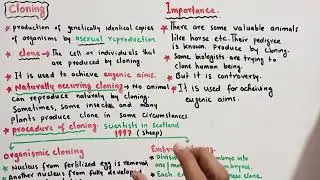 Cloning
• production of genetically identical copies
of organisms by asexual reproduction
• clone → The cell or individuals that
are produced by cloning.
• It is used to achieve eugenic aims.
• Naturally occuring cloning → No animal
can reproduce naturally by cloning.
Sometimes, some insects and many
plants produce clone in some circumstances.
• procedure of cloning. scientists in Scotland
1997 (sheep)
organismic cloning
Nucleus from fertilized egg is removed
Another nucleus from fully develop
Importance.
• There are some valuable animals
like horse etc. Their pedigree
is known. Produce by cloning.
• Some biologists are trying to
clone human being.
• But it is controversy.
• It is used for acheiving
eugenic aims.
Embry
Division
one/mo
Each
clone